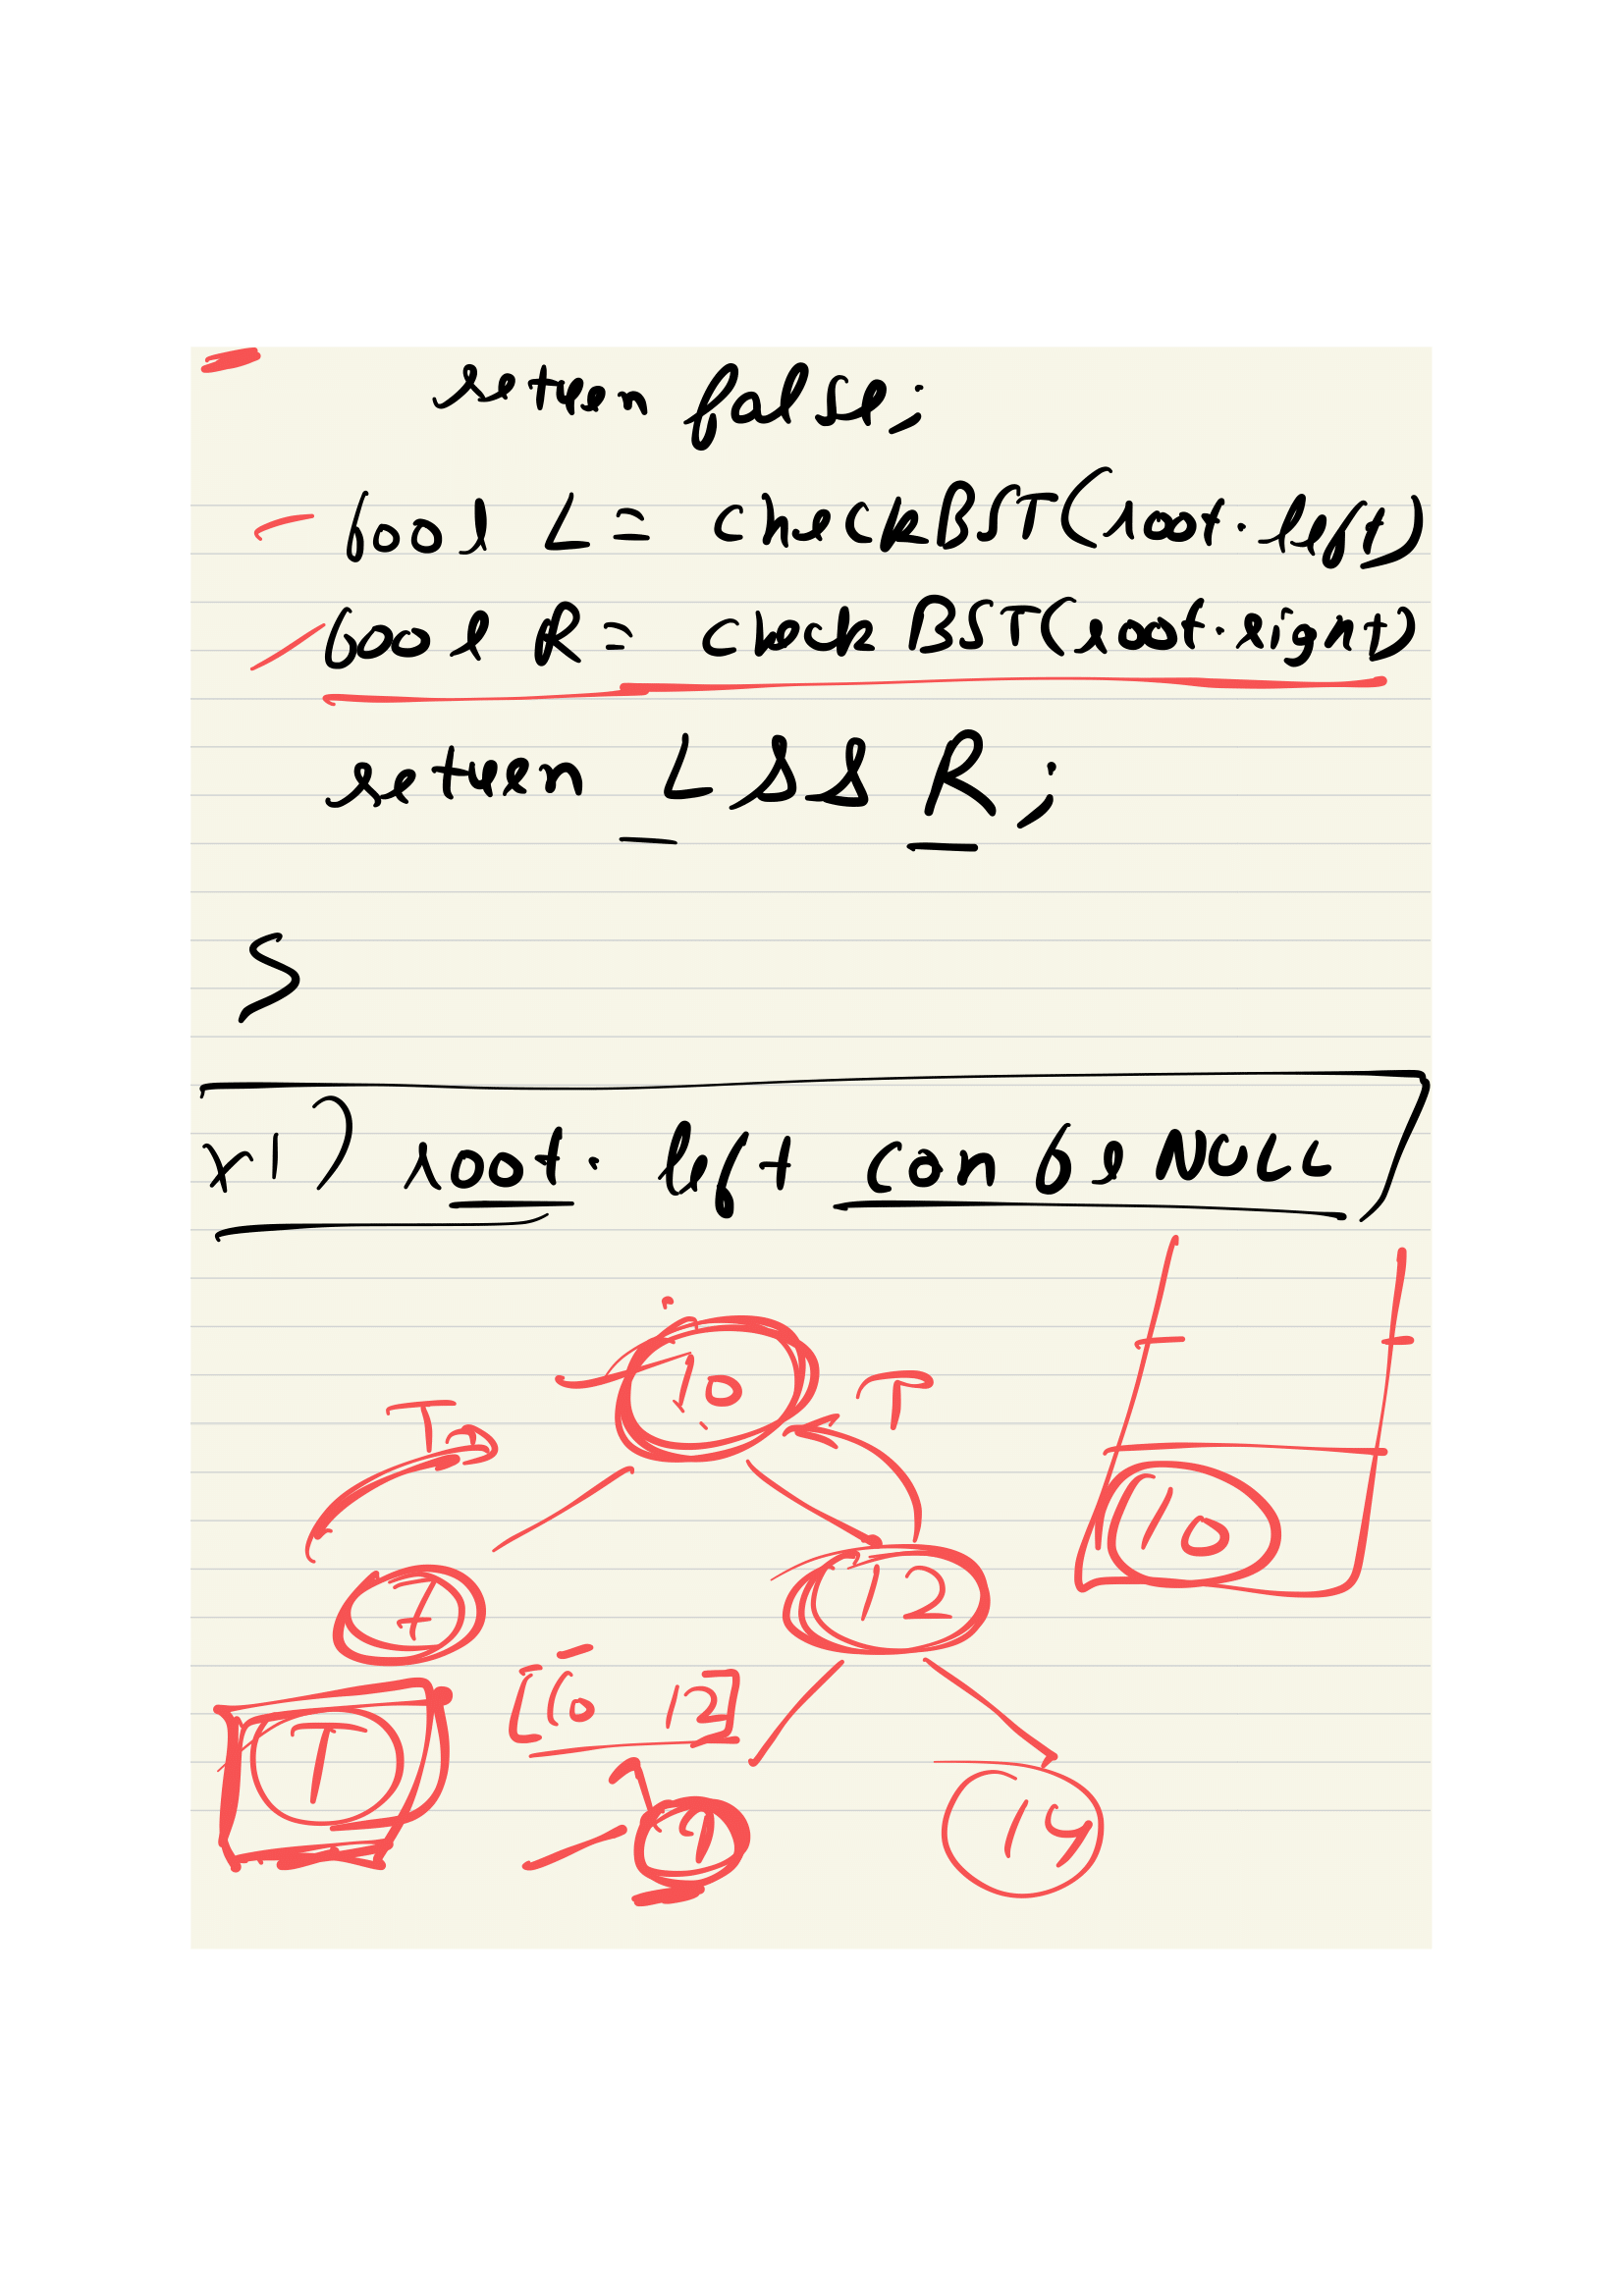 return false;
bool L = checkBST(root.left)
bool R = checkBST(root.right)
return L && R;
}
x1) root.left can be NULL
10
T
T
10
7
12
[10 12]
T
9
14